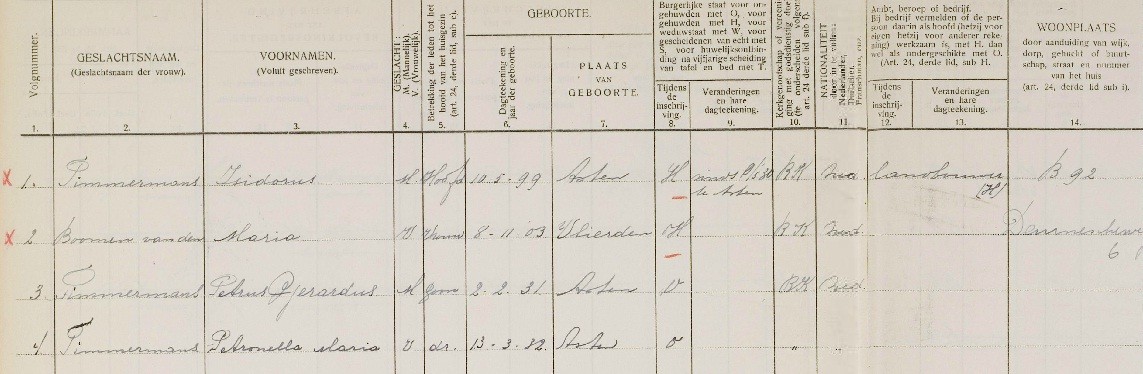 Volgnummer.
1.
GESLACHTSNAAM.
(Geslachtsnaam der vrouw).
2.
VOORNAMEN.
(Voluit geschreven).
3.
GESLACHT:
M. (Mannelijk).
V. (Vrouwelijk).
4.
Betrekking der leden tot het
hoofd van het huisgezin
(art. 24, derde lid, sub c).
5.
GEBOORTE.
Dagteekening en
jaar der geboorte.
6.
PLAATS
VAN
GEBOORTE.
7.
Burgerlijke staat voor on-
gehuwden met O, voor
gehuwden met H, voor
weduwstaat met W, voor
gescheidenen van echt met
S, voor huwelijksontbin-
ding na vijfjarige scheiding
van tafel en bed met T.
Tijdens
de
inschrij-
ving.
8.
Veranderingen
en hare
dagteekening.
9.
Kerkgenootschap of vereeni-
ging met godsdienstig doel
(te onderscheiden volgens
art. 24 derde lid sub f).
10.
NATIONALITEIT
door in te vullen:
Nederlander,
Duitscher,
Franschman, enz.
11.
Ambt, beroep of bedrijf.
Bij bedrijf vermelden of de per-
soon daarin als hoofd (hetzij voor
eigen hetzij voor anderer reke-
ning) werkzaam is, met H. dan
wel als ondergeschikte met O.
(Art. 24, derde lid, sub H.
Tijdens
de
inschrij-
ving.
12.
Veranderingen
en hare
dagteekening.
13.
WOONPLAATS
door aanduiding van wijk,
dorp, gehucht of buurt-
schap, straat en nummer
van het huis
(art. 24, derde lid sub i).
14.
x 1. Timmermans Isidorus M. Hoofd 10-5-99 Asten H sinds 9/5 30 RK Ned landbouwer B 92
te Asten (H)
x 2 Boomen van den Maria V Vrouw 8-11 03 Vlierden H RK Ned Deurnescheweg
6
3 Timmermans Petrus Gerardus M zoon 2-2-31 Asten O RK Ned
4 Timmermans Petronella Maria V dr. 13-3-32 Asten O " "